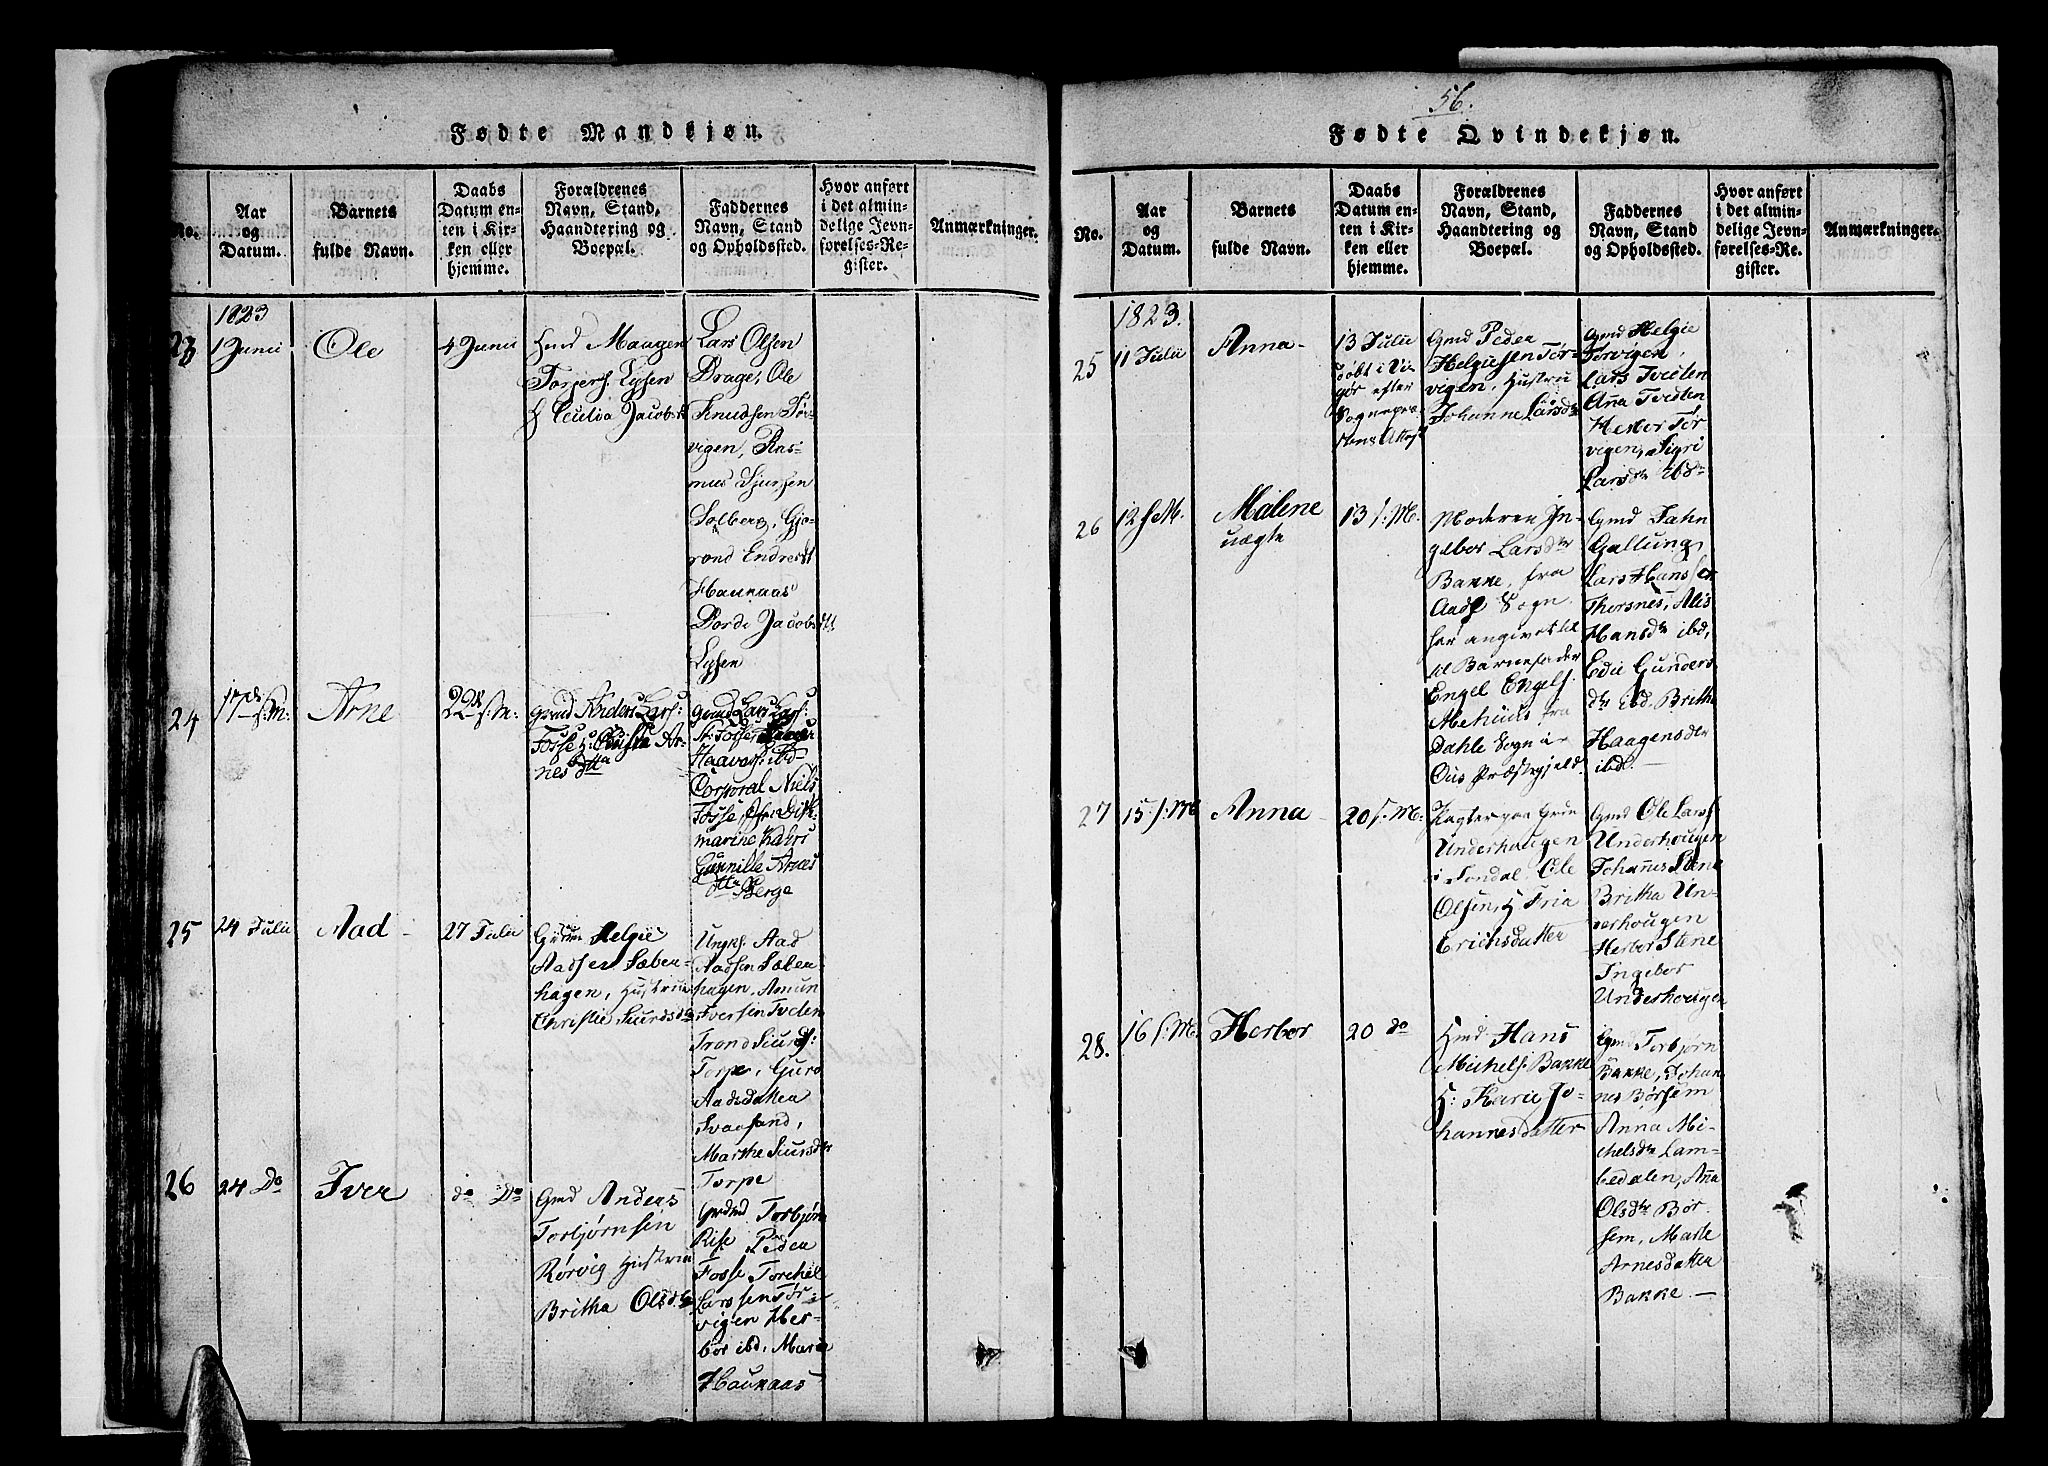 56.
Fødte Mandkjøn.
No.
Aar
og
Datum.
Barnets
fulde Navn.
Daabs
Datum en-
ten i Kir-
ken eller
hjemme.
Forældrenes
Navn, Stand,
Haandtering og
Boepæl.
Faddernes
Navn, Stand
og Opholdssted.
Hvor anført
i det almin-
delige Jevn-
førelses-Re-
gister.
Anmærkninger.
1823
23
1 Junii
Ole
4 Junii
Hmd Maagen
Torjers. Lysen
H Cecilia Jacobsd
Lars Olsen
Drage, Ole
Knudsen Tør-
vigen, Ras-
mus Sjursen
Solberg, Gjo-
rond Endresdt
Haukaas
Borde Jacobsdtt
Lysen
24
17de s:M:
Arne
22de s:M:
Gmd Anders Lars:
Fosse H: Christa Ar-
nesdtta
Gmd Lars Lars:
Haavers: ibd
Corporal Niels
Fosse,
marine Kahrs
Gunnille Arnes
dtta Berge
25
24 Julii
Aad
27 Julii
Grdm Helgie
Aadsen Sæben-
hagen, Hustrue
Christie Siursdtr
Ungks. Aad
Aadsen Sæben-
hagen, Amun
Iversen Tveden
Trond Siurs:
Torpe, Guro
Aadsdatter
Svaasand,
Marthe Siursdtr
Torpe
26
24 Do
Iver
do Do
Gmd Anders
Torbjørnsen
Rørvig Hustrue
Britha Olsdtr
Grdmd Torbjørn
Rise Peder
Fosse Torchel
Larssen Tør-
vigen Her-
bor ibd. Marie
Haukaas
Fødte Qvindekjøn.
No.
Aar
og
Datum.
Barnets
fulde Navn.
Daabs
Datum en-
ten i Kir-
ken eller
hjemme.
Forældrenes
Navn, Stand,
Haandtering og
Boepæl.
Faddernes
Navn, Stand
og Opholdssted.
Hvor anført
i det almin-
delige Jevn-
førelses-Re-
gister.
Anmærkninger.
1823.
25
11 Julii
Anna
13 Julii
døbt i Vi-
gør efter
Sognepræ-
stens Attest
Gmd Peder
Helgiesen Tør-
vigen, Hustru
Johanne Larsdtr
Gmd Helgie
Torvigen,
Lars Tveiten
Anna Tveiten
Herbor Tør
vigen, Sigri
Larsdtr ibd
26
12 s:M.
Malene
uægte
13 s:M.
Moderen In-
gebor Larsdtr
Bakke, fra
Aads Sogn
har angivet til
til Barnefader
Engel Engels.
Mehuus fra
Dahle Sogn i
Ous Præstegjeld.
Gmd Jahn
Gallung,
Lars Hans sen
Thorsnes, Alis
Hansdtr ibd,
Edie Gunders
dtr ibd. Britha
Haagensdtr
ibd.
27
15 s:M
Anna
20 s:M:
Underhougen
i Jondal Ole
Olsen, H Fria
Erichsdatter
Gmd Ole Lars
Underhougen
Johannes Stene
Britha Un-
derhougen
Herbor Stene
Ingebor
Underhougen
28.
16 s:M.
Herbor
20 do
Hmd Hans
Michels. Bakke
H: Karie Jo-
hannesdatter
Gmd Torbjørn
Bakke, Johan-
nes Børsem
Anna Mi-
chelsdtr Lam-
bedalen, Anna
Olsdtr Bør
sem, Marte
Arnesdatter
Bakke.